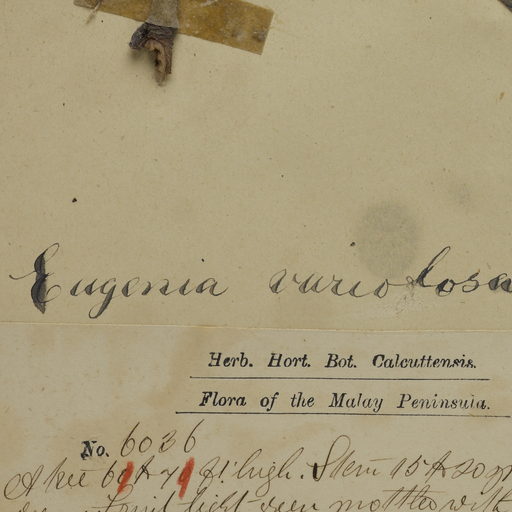 Eugenia variolosa
Herb. Hort. Bot. Calcuttensis.
Flora of the Malay Peninsula.
No. 6036
A tree 60 to 70 ft. high. Stem 15 to 20
Fruit light green mottled with